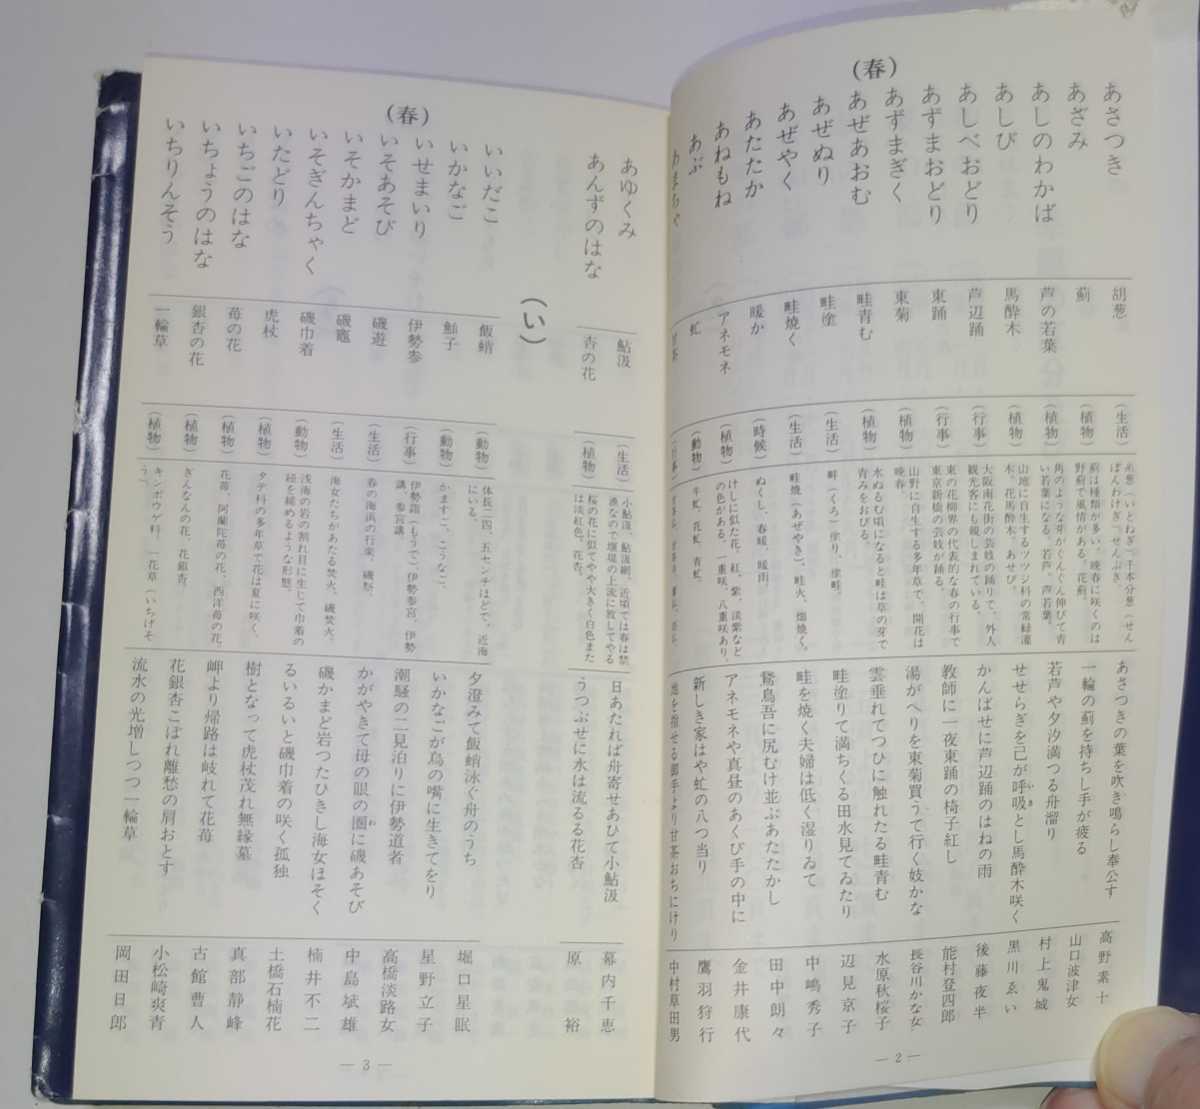 (春)
あさつき 胡葱 (生活) 糸葱(いとねぎ)千本分葱(せんぼんわけぎ)せんぶき。 あさつきの葉を吹き鳴らし奉公す 高野素十
あざみ 薊 (植物) 薊は種類が多い。晩春に咲くのは野薊で風情がある。花薊。 一輪の薊を持ちし手が疲る 山口波津女
あしのわかば 芦の若葉 (植物) 角のような芽がぐんぐん伸びて青い若葉になる。若芦、芦若葉。 若芦や夕汐満つる舟溜り 村上鬼城
あしび 馬酔木 (植物) 山地に自生するツツジ科の常緑灌木。花馬酔木。あせび。 せせらぎを己が呼吸とし馬酔木咲く 黒川ゑい
あしべおどり 芦辺踊 (行事) 大阪南花街の芸妓の踊りで、外人観光客にも親しまれている。 かんばせに芦辺踊のはねの雨 後藤夜半
あずまおどり 東踊 (行事) 東の花柳界の代表的な春の行事で東京新橋の芸妓が踊る。 教師に一夜東踊の椅子紅し 能村登四郎
あずまぎく 東菊 (植物) 山野に自生する多年草で、開花は晩春。 湯がへりを東菊買うて行く妓かな 長谷川かな女
あぜあおむ 畦青む (植物) 水ぬるむ頃になると畦は草の芽で青みをおびる。 雲垂れてつひに触れたる畦青む 水原秋桜子
あぜぬり 畦塗 (生活) 畔(くろ)塗り、塗畦。 畦塗りて満ちくる田水見てゐたり 辺見京子
あぜやく 畦焼く (生活) 畦焼(あぜやき)、畦火、畑焼く。 畦を焼く夫婦は低く湿りゐて 中嶋秀子
あたたか 暖か (時候) ぬくし、春暖、暖雨。 鵞鳥吾に尻むけ並ぶあたたかし 田中朗々
あねもね アネモネ (植物) けしに似た花。紅、紫、淡紫などの色がある。一重咲、八重咲あり。 アネモネや真昼のあくび手の中に 金井康代
あぶ 虻 (動物) 牛虻、花虻、青虻。 新しき家はや虻の八つ当り 鷹羽狩行
あまちゃ 甘茶 (行事) 地を指せる御手より甘茶おちにけり 中村草田男
— 2 —
(春)
あゆくみ 鮎汲 (生活) 小鮎汲、鮎汲網。近頃では春は禁漁なので堰堤の上流に放してやる 日あたれば舟寄せあひて小鮎汲 幕内千恵
あんずのはな 杏の花 (植物) 桜の花に似てやや大きく白色または淡紅色。花杏。 うつぶせに水は流るる花杏 原 裕
(い)
いいだこ 飯蛸 (動物) 体長二四、五センチほどで、近海にいる。 夕澄みて飯蛸泳ぐ舟のうち 堀口星眠
いかなご 鮊子 (動物) かますご、こうなご。 いかなごが烏の嘴に生きてをり 星野立子
いせまいり 伊勢参 (行事) 伊勢詣(もうで)、伊勢参宮、伊勢講、参宮講。 潮騒の二見泊りに伊勢道者 高橋淡路女
いそあそび 磯遊 (生活) 春の海浜の行楽。磯祭。 かがやきて母の眼の圏に磯あそび 中島斌雄
いそかまど 磯竈 (生活) 海女たちがあたる焚火。磯焚火。 磯かまど岩つたひきし海女ほそく 楠井不二
いそぎんちゃく 磯巾着 (動物) 浅海の岩の割れ目に生じて巾着の紐を締めるような形態。 るいるいと磯巾着の咲く孤独 土橋石楠花
いたどり 虎杖 (植物) タデ科の多年草で花は夏に咲く。 樹となって虎杖茂れ無縁墓 真部静峰
いちごのはな 苺の花 (植物) 花苺、阿蘭陀苺の花、西洋苺の花。 岬より帰路は岐れて花苺 古館曹人
いちょうのはな 銀杏の花 (植物) ぎんなんの花、花銀杏。 花銀杏こぼれ離愁の肩おとす 小松崎爽青
いちりんそう 一輪草 (植物) キンポウゲ科。一花草(いちげそう)。 流水の光増しつつ一輪草 岡田日郎
— 3 —